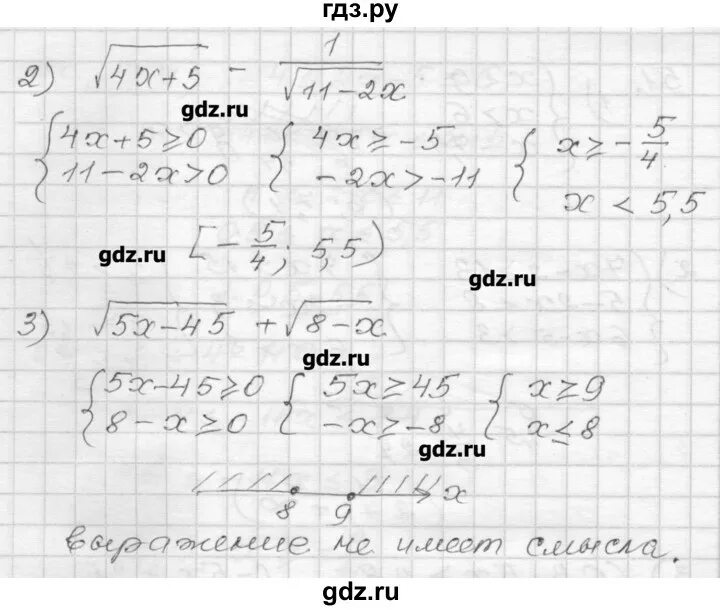 гдз.ру
2) √(4x+5) - 1/√(11-2x)
gdz.ru
{4x+5≥0 {4x≥-5 {x≥-5/4
{11-2x>0 {-2x>-11 {x<5,5
gdz.ru [-5/4; 5,5)
gdz.ru
3) √(5x-45) + √(8-x)
gdz.ru
{5x-45≥0 {5x≥45 {x≥9
{8-x≥0 {-x≥-8 {x≤8
gdz.ru
8 9 x
выражение не имеет смысла.
gdz.ru